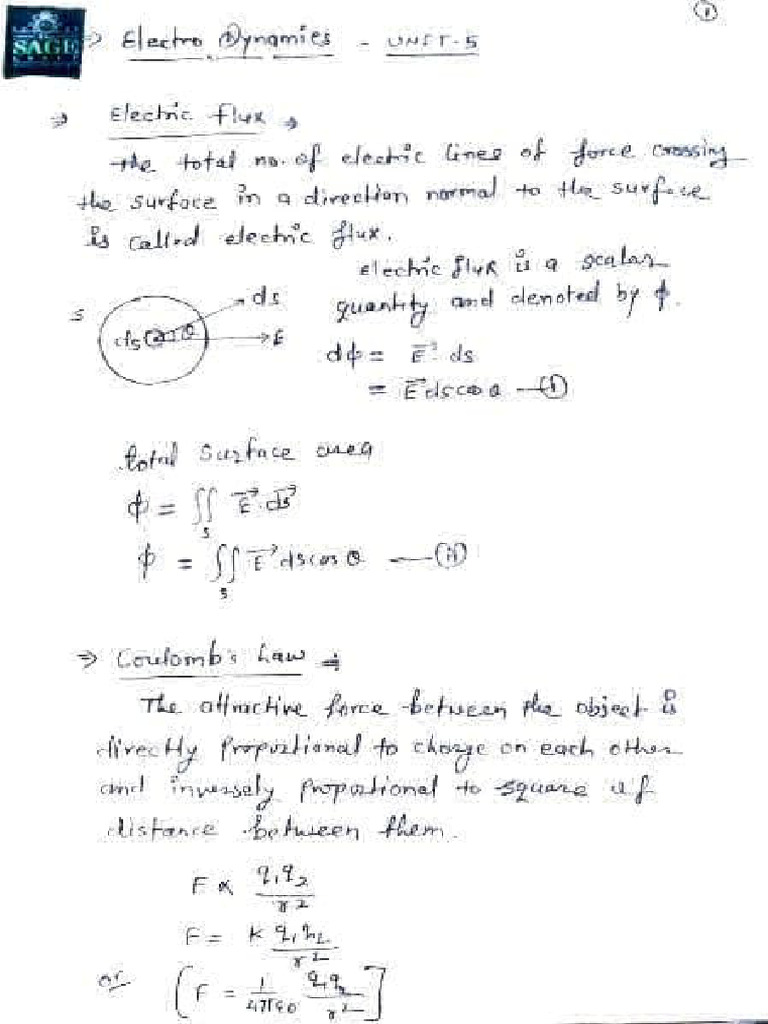 ①
SAGE
⇒ Electro Dynamics - UNIT-5
⇒ Electric flux →
the total no. of electric lines of force crossing
the surface in a direction normal to the surface
is called electric flux.
electric flux is a scalar
quantity and denoted by ϕ.
S ds θ ds E
dϕ = E⃗ · ds
= E⃗ ds cos θ —(i)
total surface area
ϕ = ∬ₛ E⃗ · ds⃗
ϕ = ∬ₛ E⃗ ds cos θ —(ii)
⇒ Coulomb's Law
The attractive force between the object is
directly proportional to charge on each other
and inversely proportional to square of
distance between them.
F ∝ q₁q₂ / r²
F = K q₁q₂ / r²
or [F = 1/4π∈₀ q₁q₂ / r²]